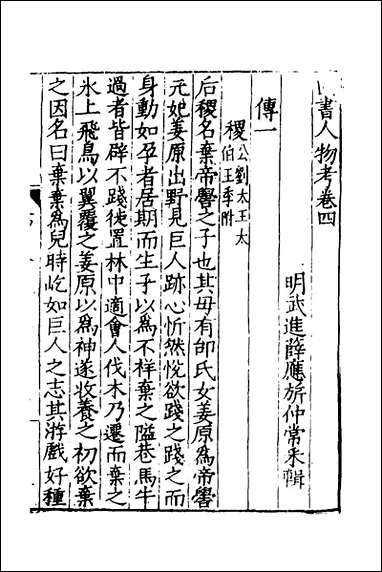 書人物考卷四
明武進薛應旂仲常采輯
傳一
稷公劉太王太伯王季附
后稷名棄帝嚳之子也其毋有邰氏女姜原為帝嚳
元妃姜原出野見巨人跡心忻然悅欲踐之踐之而
身動如孕者居期而生子以為不祥棄之隘巷馬牛
過者皆辟不踐徙置林中適會人伐木乃遷而棄之
氷上飛鳥以翼覆之姜原以為神遂收養之初欲棄
之因名曰棄棄為兒時屹如巨人之志其游戲好種